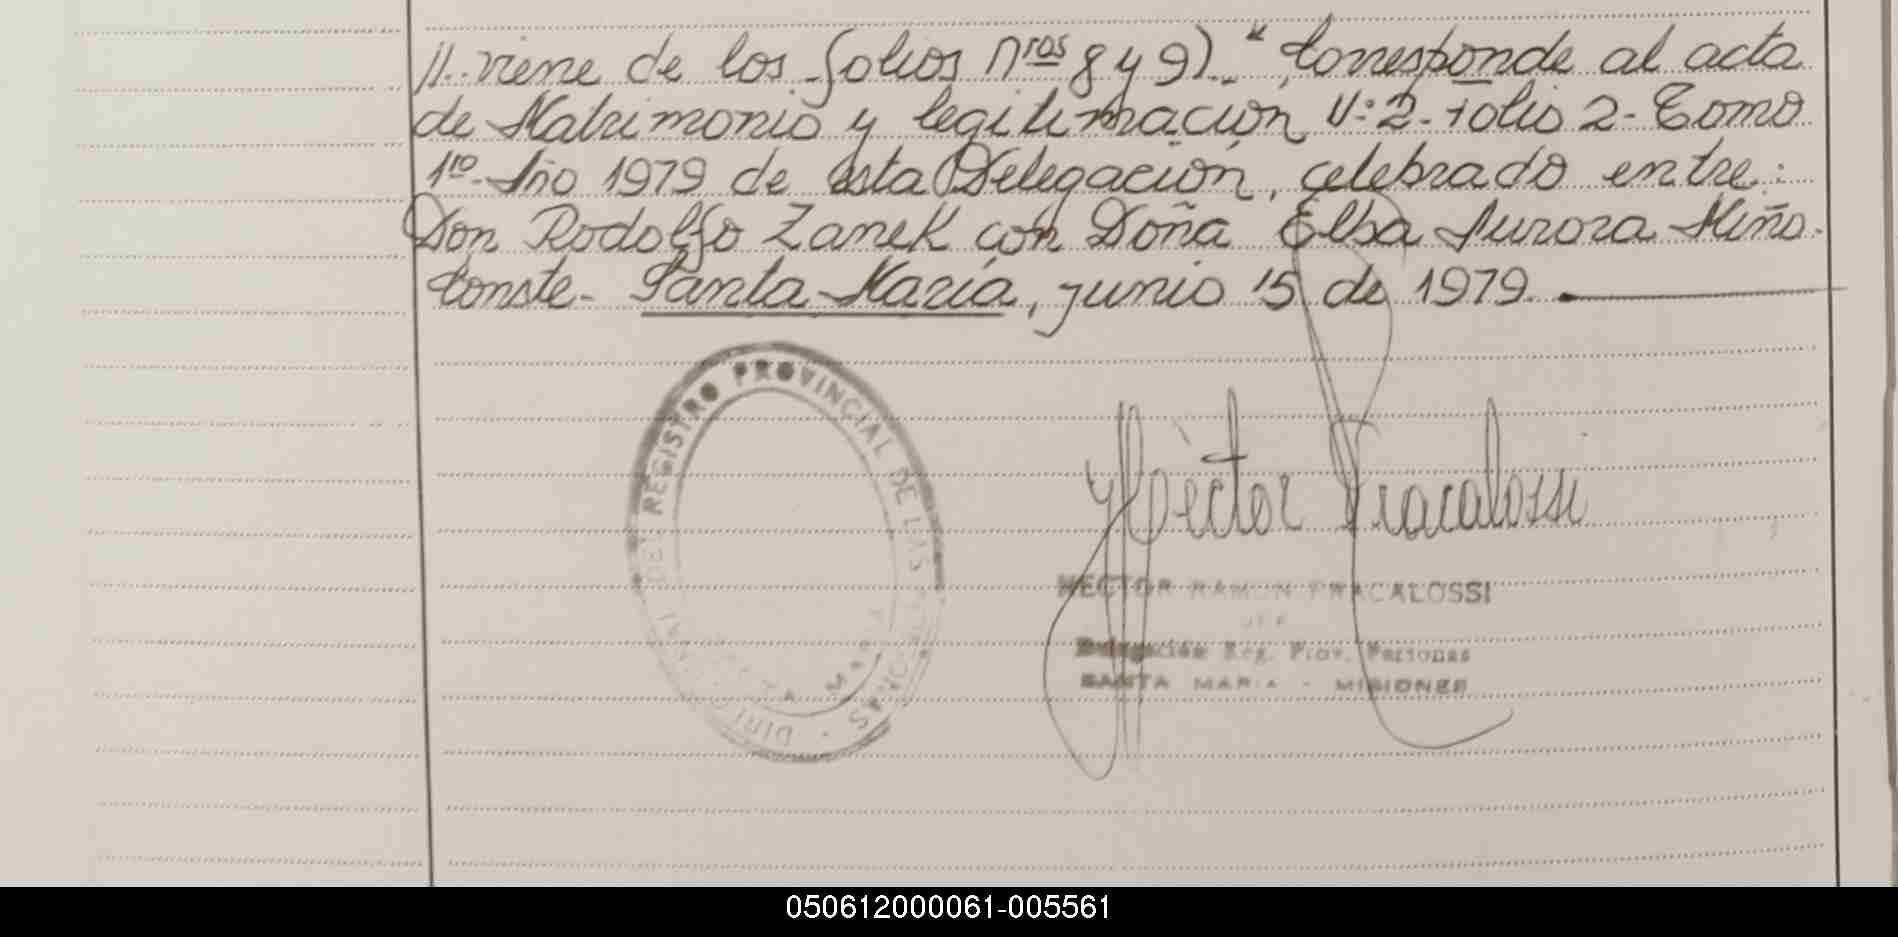 //..viene de los folios Nros 8 y 9).- "Corresponde al acta
de Matrimonio y legitimación N:2.- folio 2.- Tomo
1ro.- Año 1979 de esta Delegación, celebrado entre:
Don Rodolfo Zanek con Doña Elba Aurora Miño.
Conste.- Santa María, junio 15 de 1979.
REGISTRO PROVINCIAL DE LAS
Hèctor Fracalossi
HECTOR RAMON FRACALOSSI
JEFE
Delegación Reg. Prov. Personas
SANTA MARIA - MISIONES
050612000061-005561